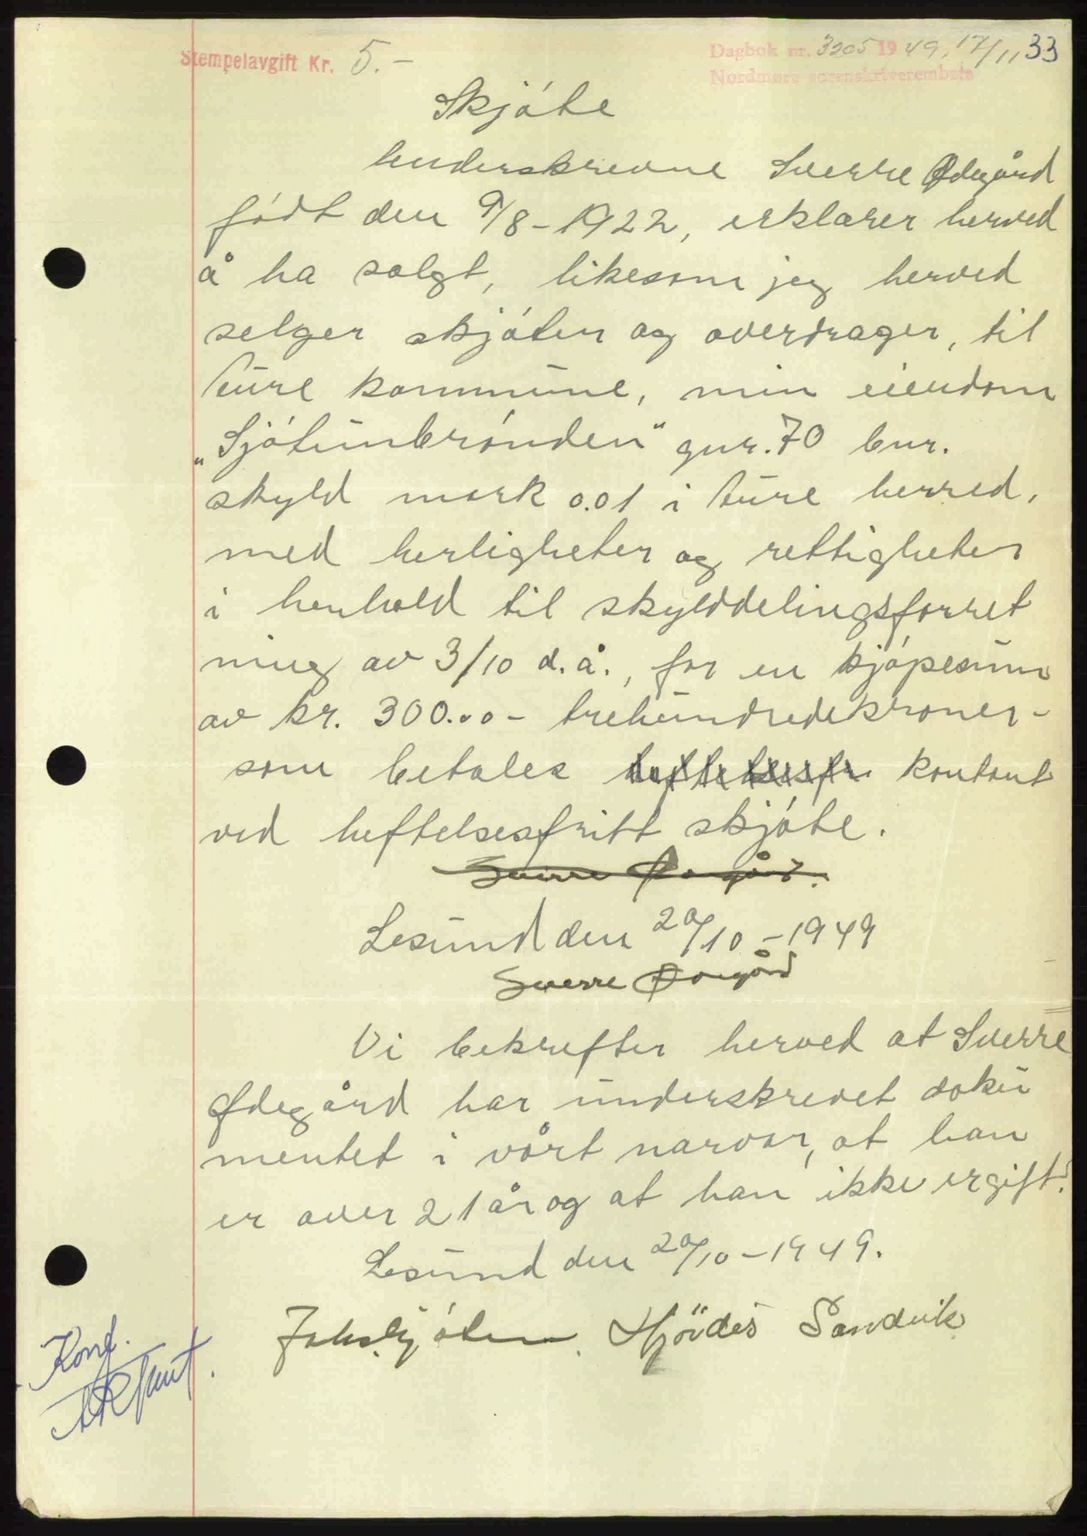 Stempelavgift Kr. 5.-
Dagbok nr. 3205 1949, 17/11 33
Nordmøre sorenskriverembete
Skjóte
Underskrevne Sverre Ødegård
fódt den 9/8-1922, erklærer herved
å ha solgt, likesom jeg herved
selger skjóter og overdrager, til
Ture kommune, min eiendom
„Sjótunbrónden“ gnr. 70 bnr.
skyld mark 0.01 i Ture herred,
med herligheter og rettigheter
i henhold til skylddelingsforret
ning av 3/10 d.å., for en kjópesum
av kr. 300.00 - trehundredekroner -
som betales kontant
ved heftelsesfritt skjóte.
Sverre Ødegård.
Lesund den 20/10-1949
Sverre Ødegård
Vi bekrefter herved at Sverre
Ødegård har underskrevet doku
mentet i vårt narvær, at han
er over 21 år og at han ikke er gift.
Lesund den 20/10-1949.
Hjördis Sandvik
Konf.